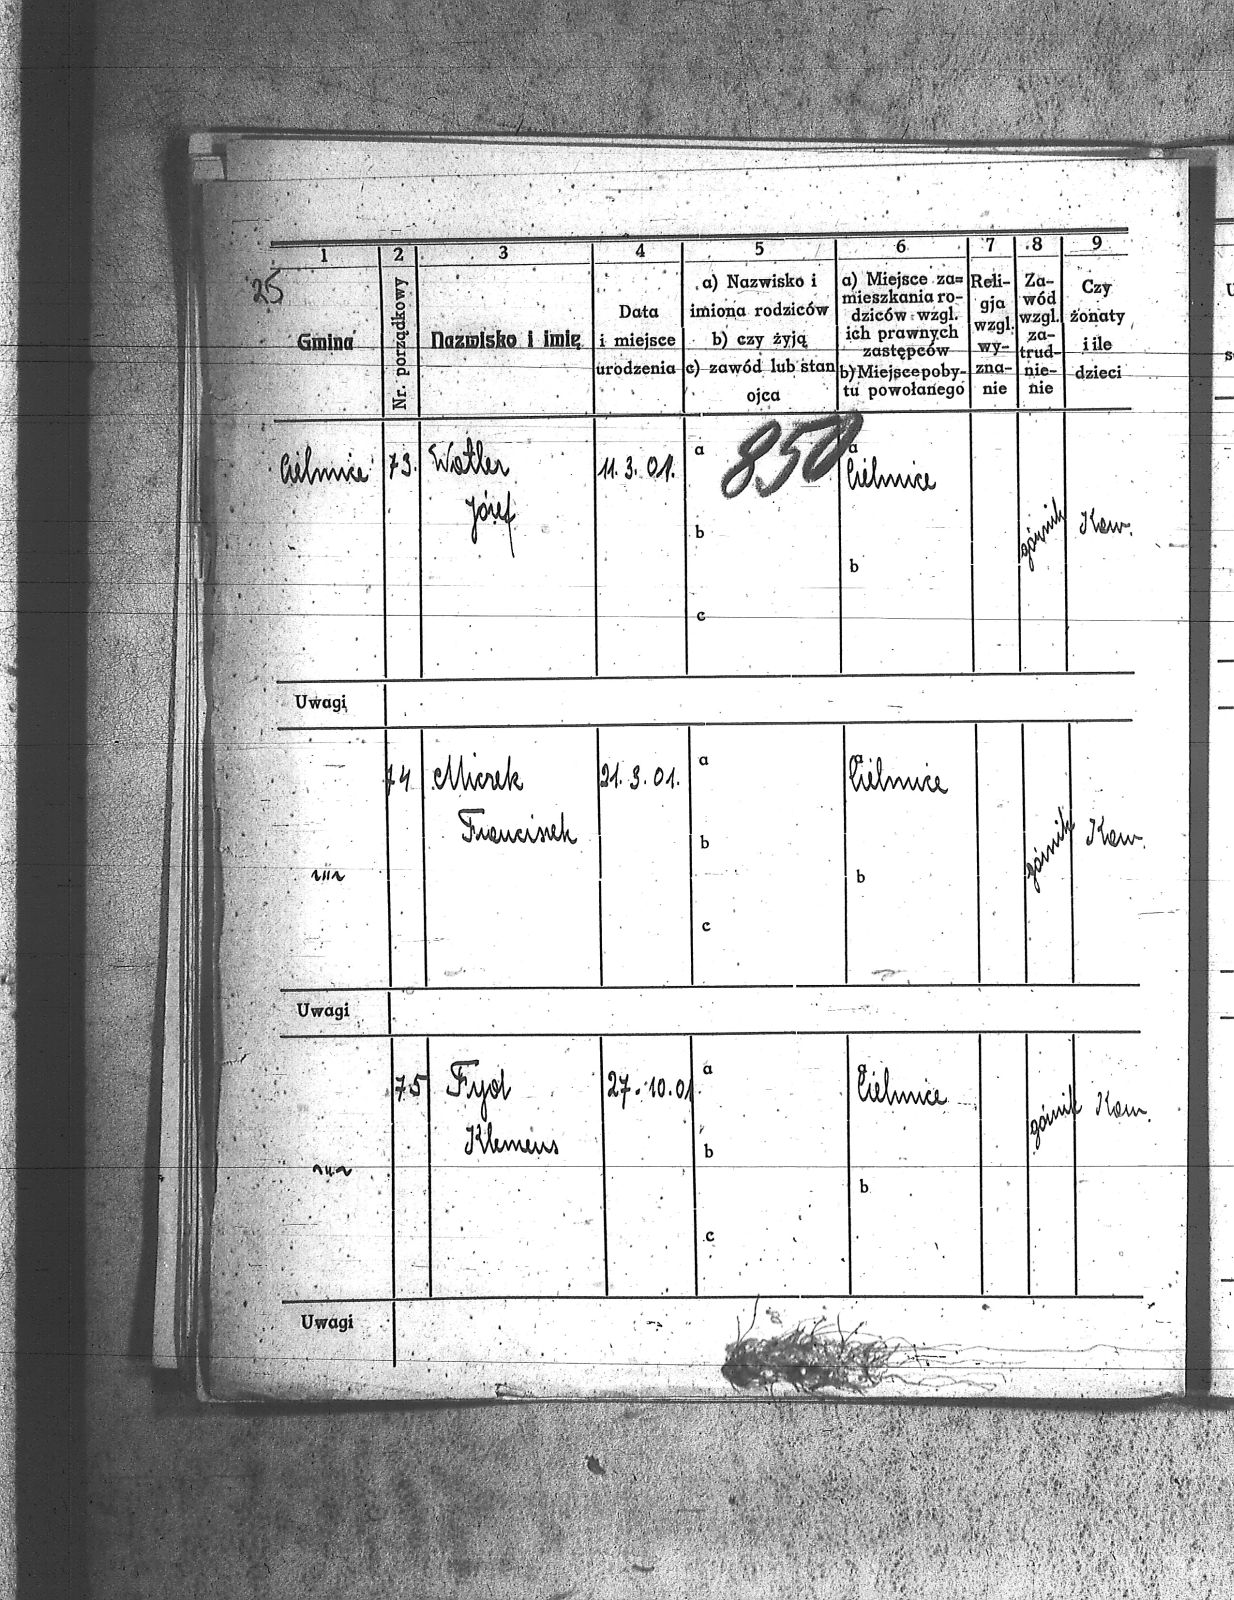 25
1 2 3 4 5 6 7 8 9
Gmina
Nr. porządkowy
Nazwisko i imię
Data
i miejsce
urodzenia
a) Nazwisko i
imiona rodziców
b) czy żyją
c) zawód lub stan
ojca
a) Miejsce za=
mieszkania ro-
dziców wzgl.
ich prawnych
zastępców
b) Miejsce poby-
tu powołanego
Reli-
gja
wzgl.
wy-
zna-
nie
Za-
wód
wzgl.
za-
trud-
nie-
nie
Czy
żonaty
i ile
dzieci
850
Cielmice 73. 11.3.01. a a
Józef Cielmice
b górnik Kaw.
b
c
Uwagi
74 21.3.01. a Cielmice
Franciszek
b górnik Kaw.
-"- b
c
Uwagi
75 Fyol 27.10.01 a Cielmice
Klemens górnik Kaw.
b
-"- b
c
Uwagi